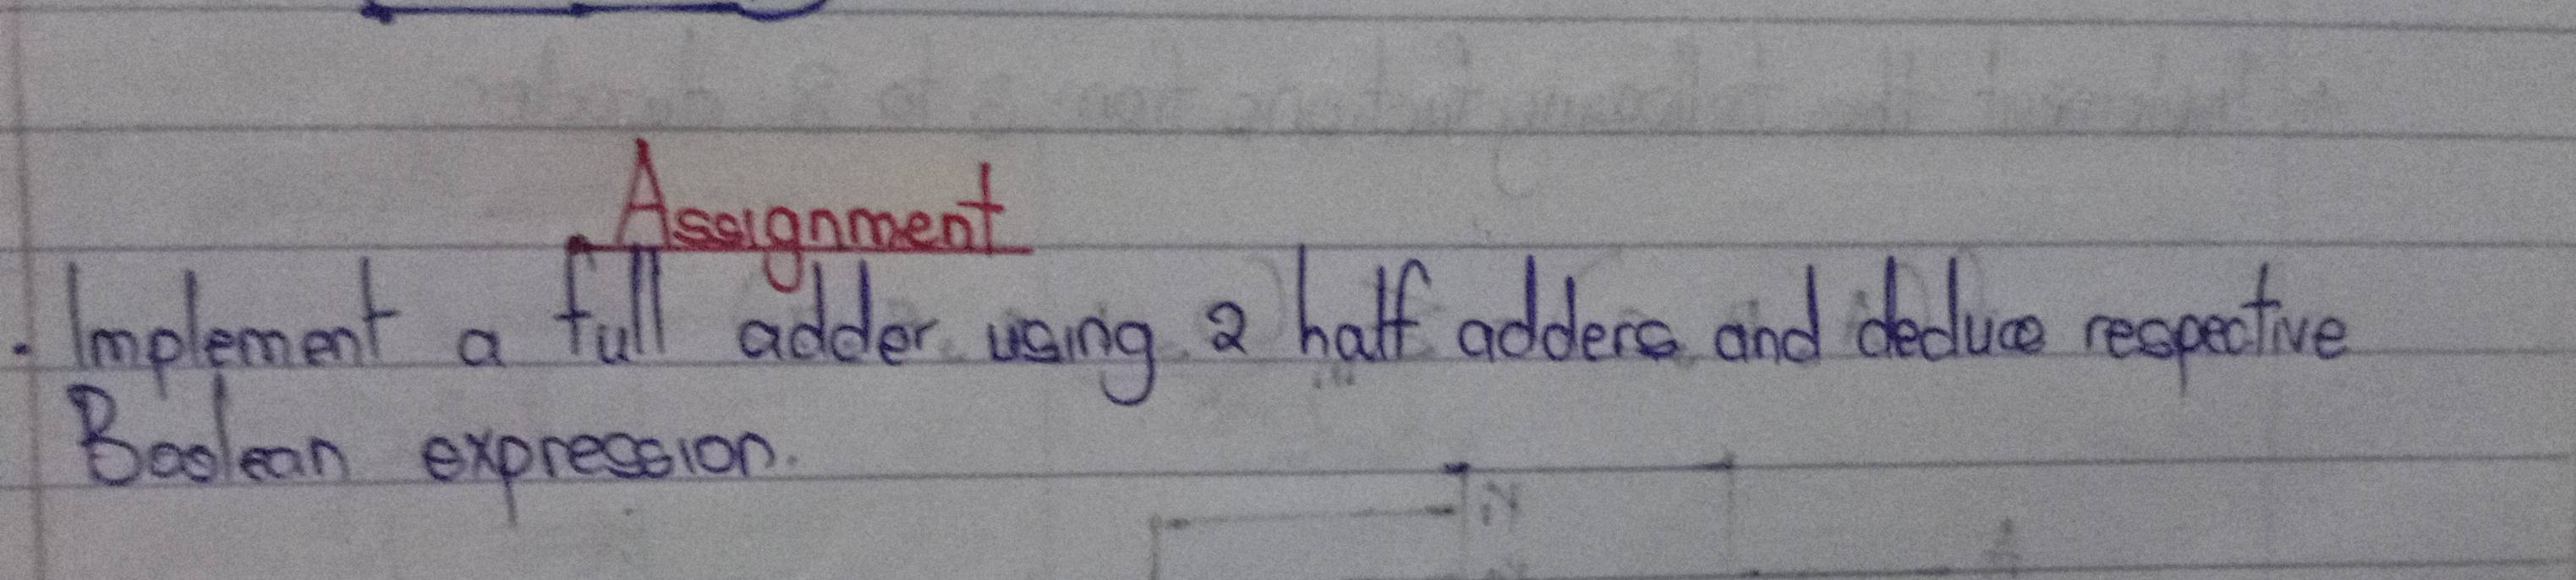 Assignment
. Implement a full adder using 2 half adders and deduce respective
Boolean expression.